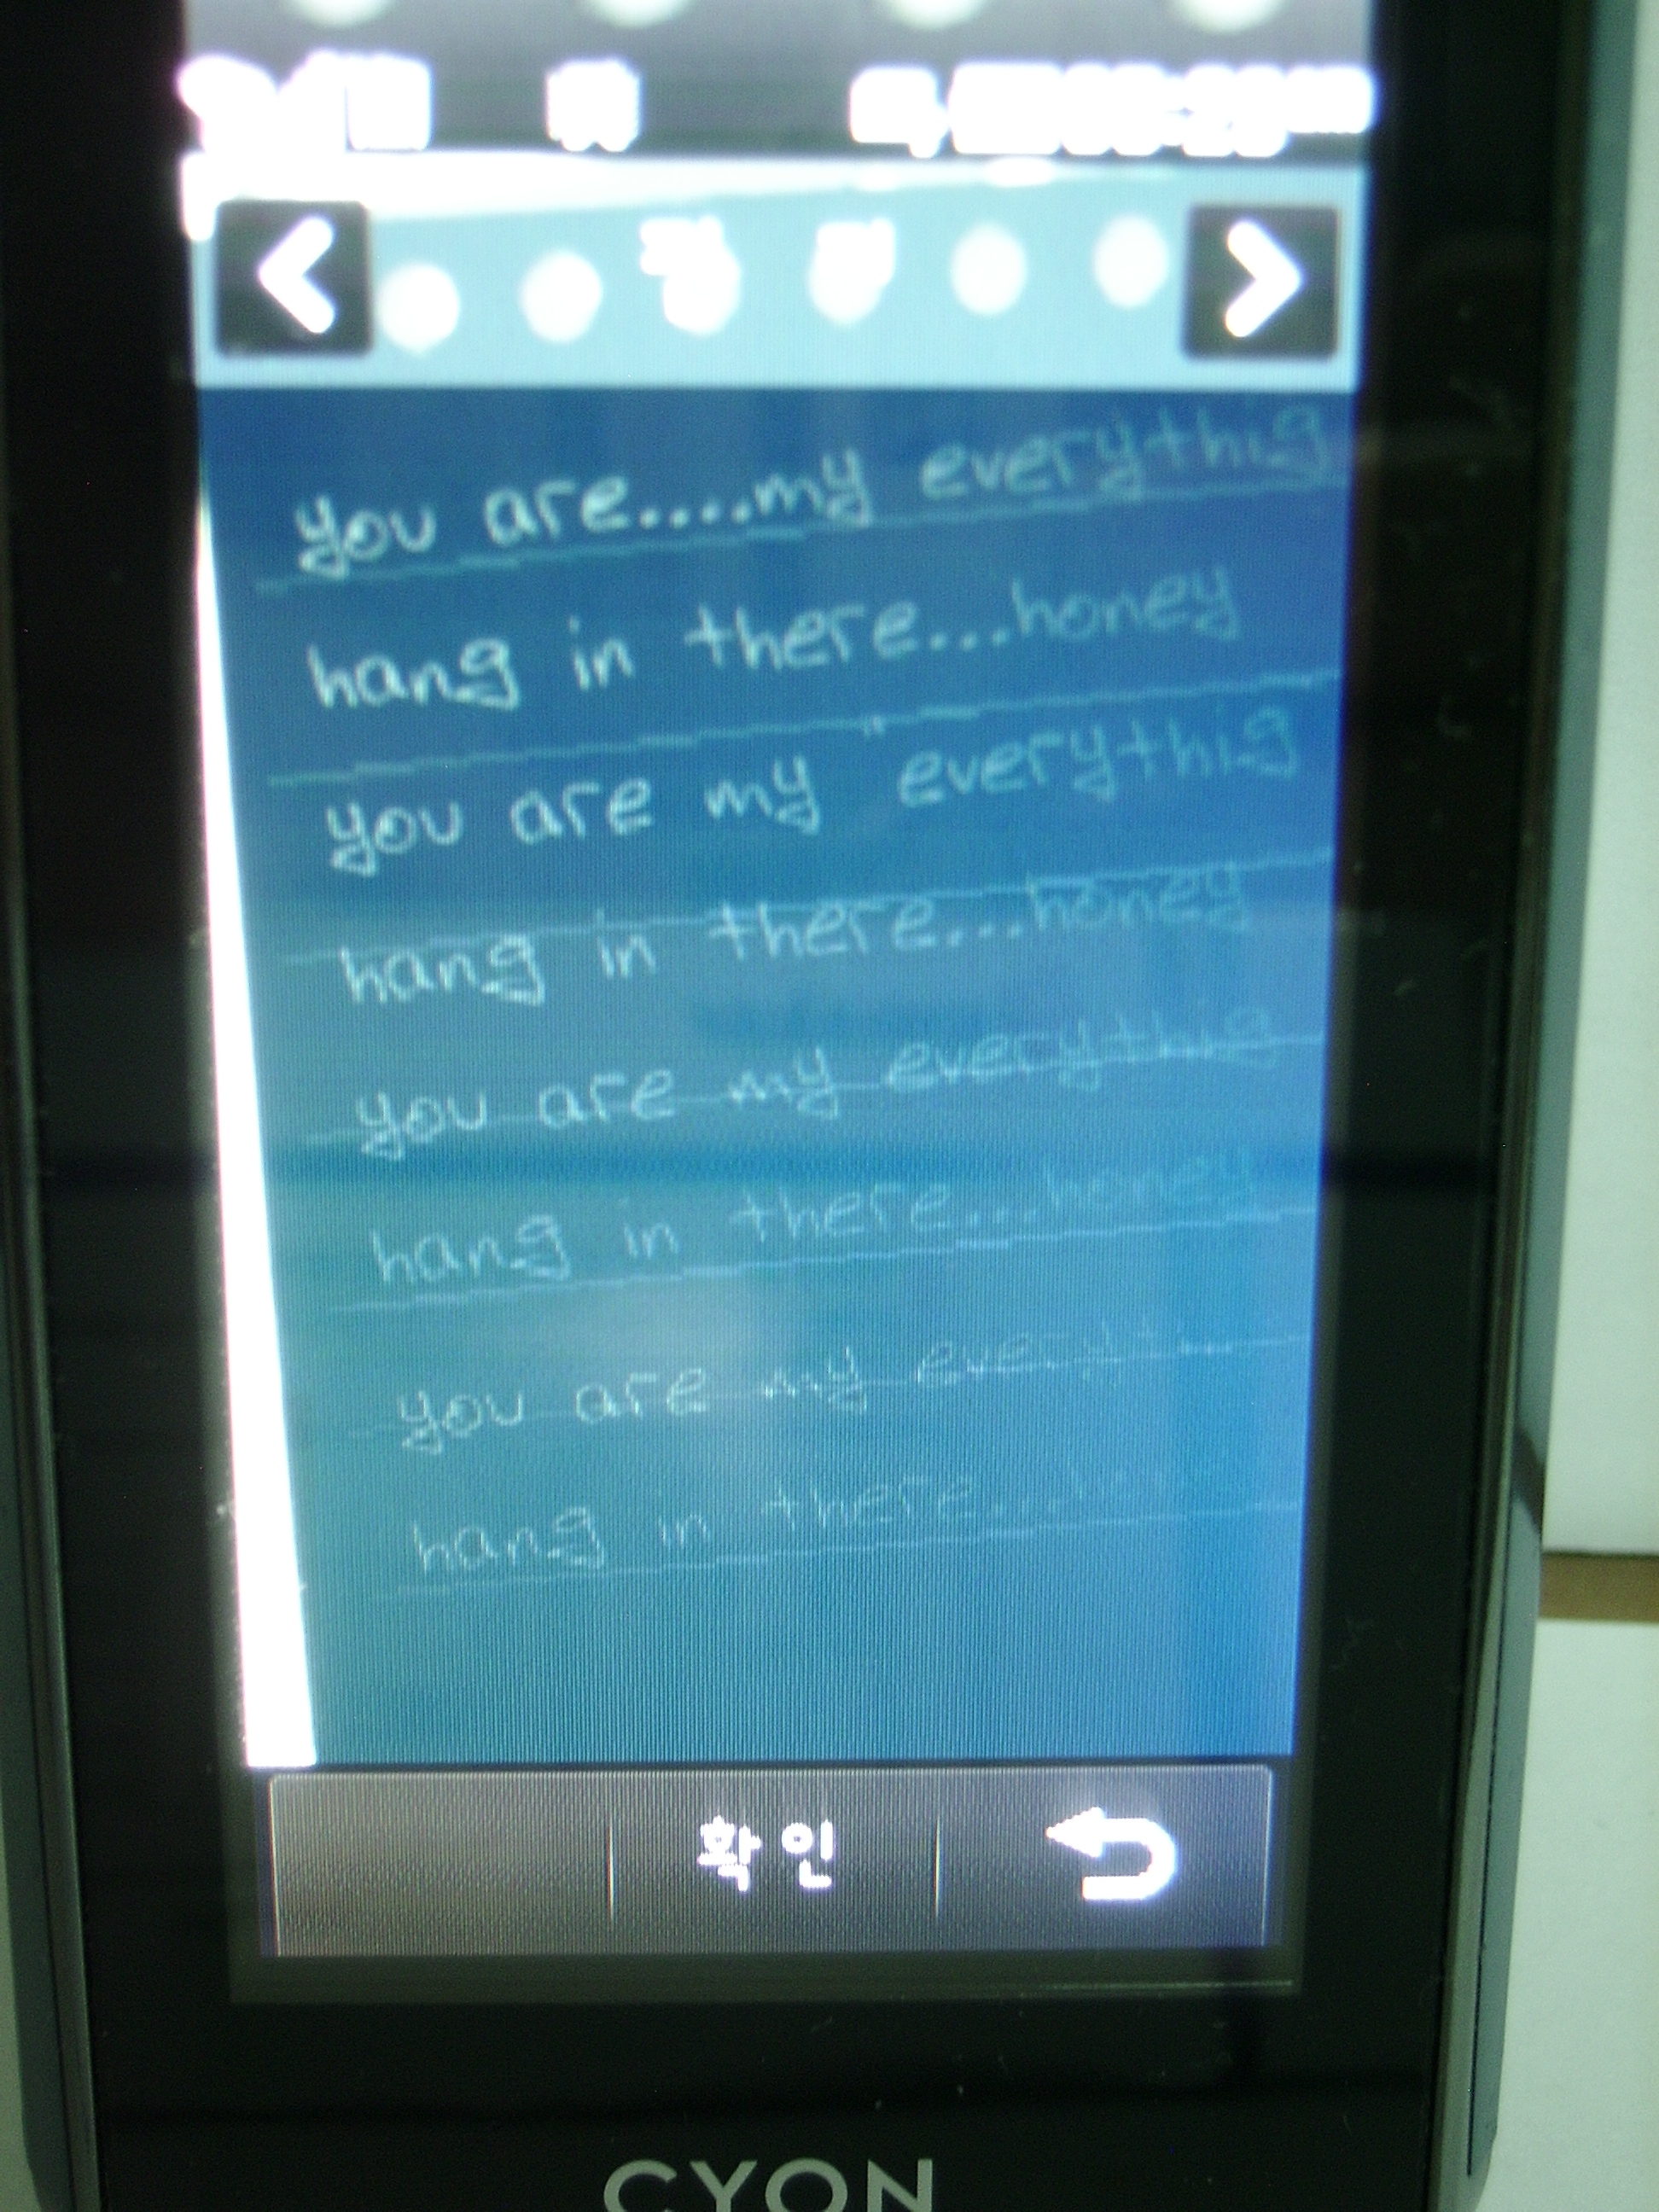 you are....my everythig
hang in there...honey
you are my everythig
hang in there...honey
you are my everythig
hang in there...honey
you are my everyth
hang in there...
확인
CYON